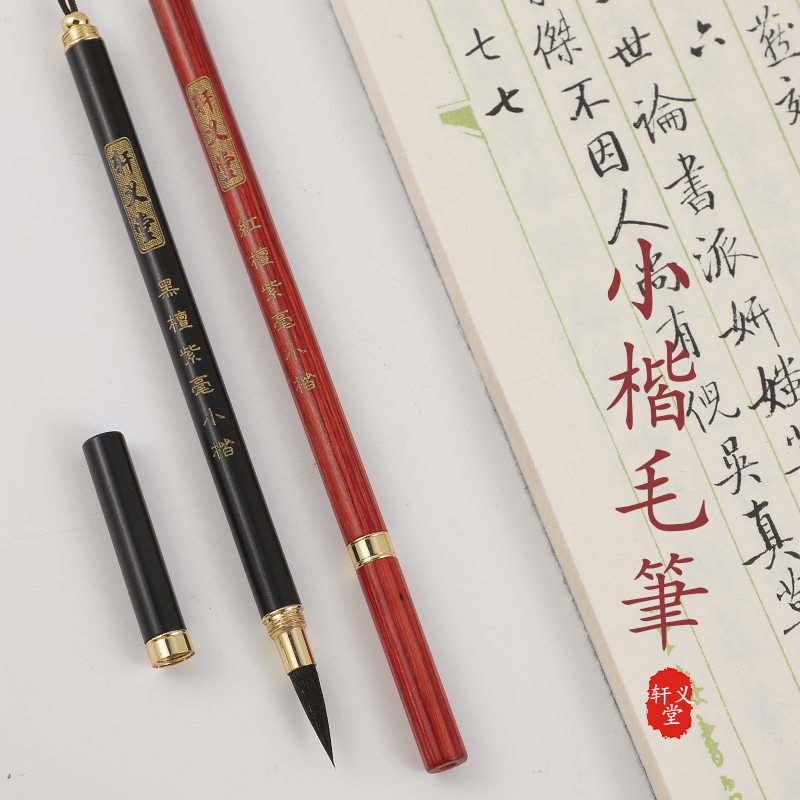 轩义堂
黑檀紫毫小楷
轩义堂
紅檀紫毫小楷
小楷毛筆
轩义堂
六
世論書派妍媸
傑不因人尚有倪吳真
七七